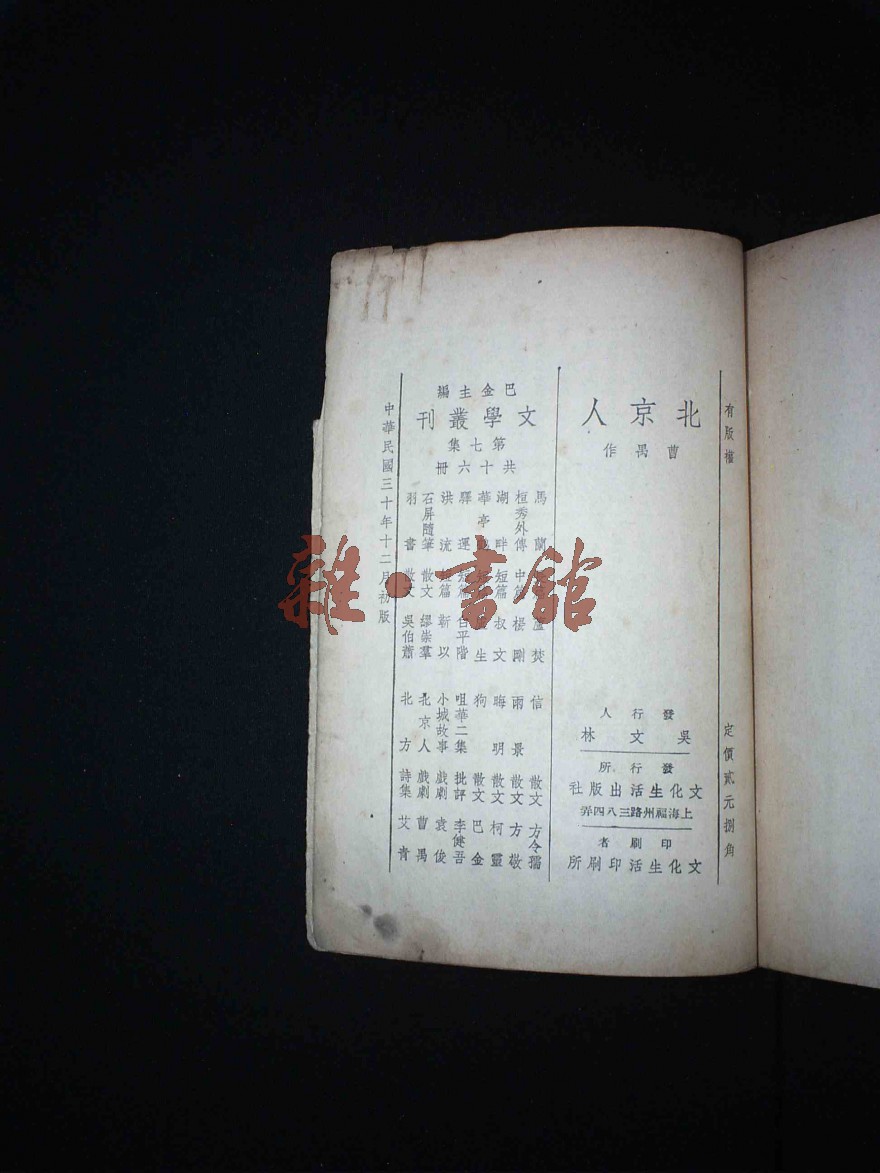 有版權
定價貳元捌角
北京人
曹禺作
發行人
吳文林
發行所
文化生活出版社
上海福州路三八四弄
印刷者
文化生活印刷所
巴金主編
文學叢刊
第七集
共十六冊
馬蘭 蘆焚
桓秀外傳 中篇 楊剛
湖畔 短篇 叔文
華亭 生
驛運 短篇 白平階
洪流 篇 靳以
石屏隨筆 散文 繆崇羣
羽書 散文 吳伯蕭
信 散文 方令孺
雨景 散文 方敬
晦明 散文 柯靈
狗 散文 巴金
咀華二集 批評 李健吾
小城故事 戲劇 袁俊
北京人 戲劇 曹禺
北方 詩集 艾青
中華民國三十年十二月初版
雜·書館